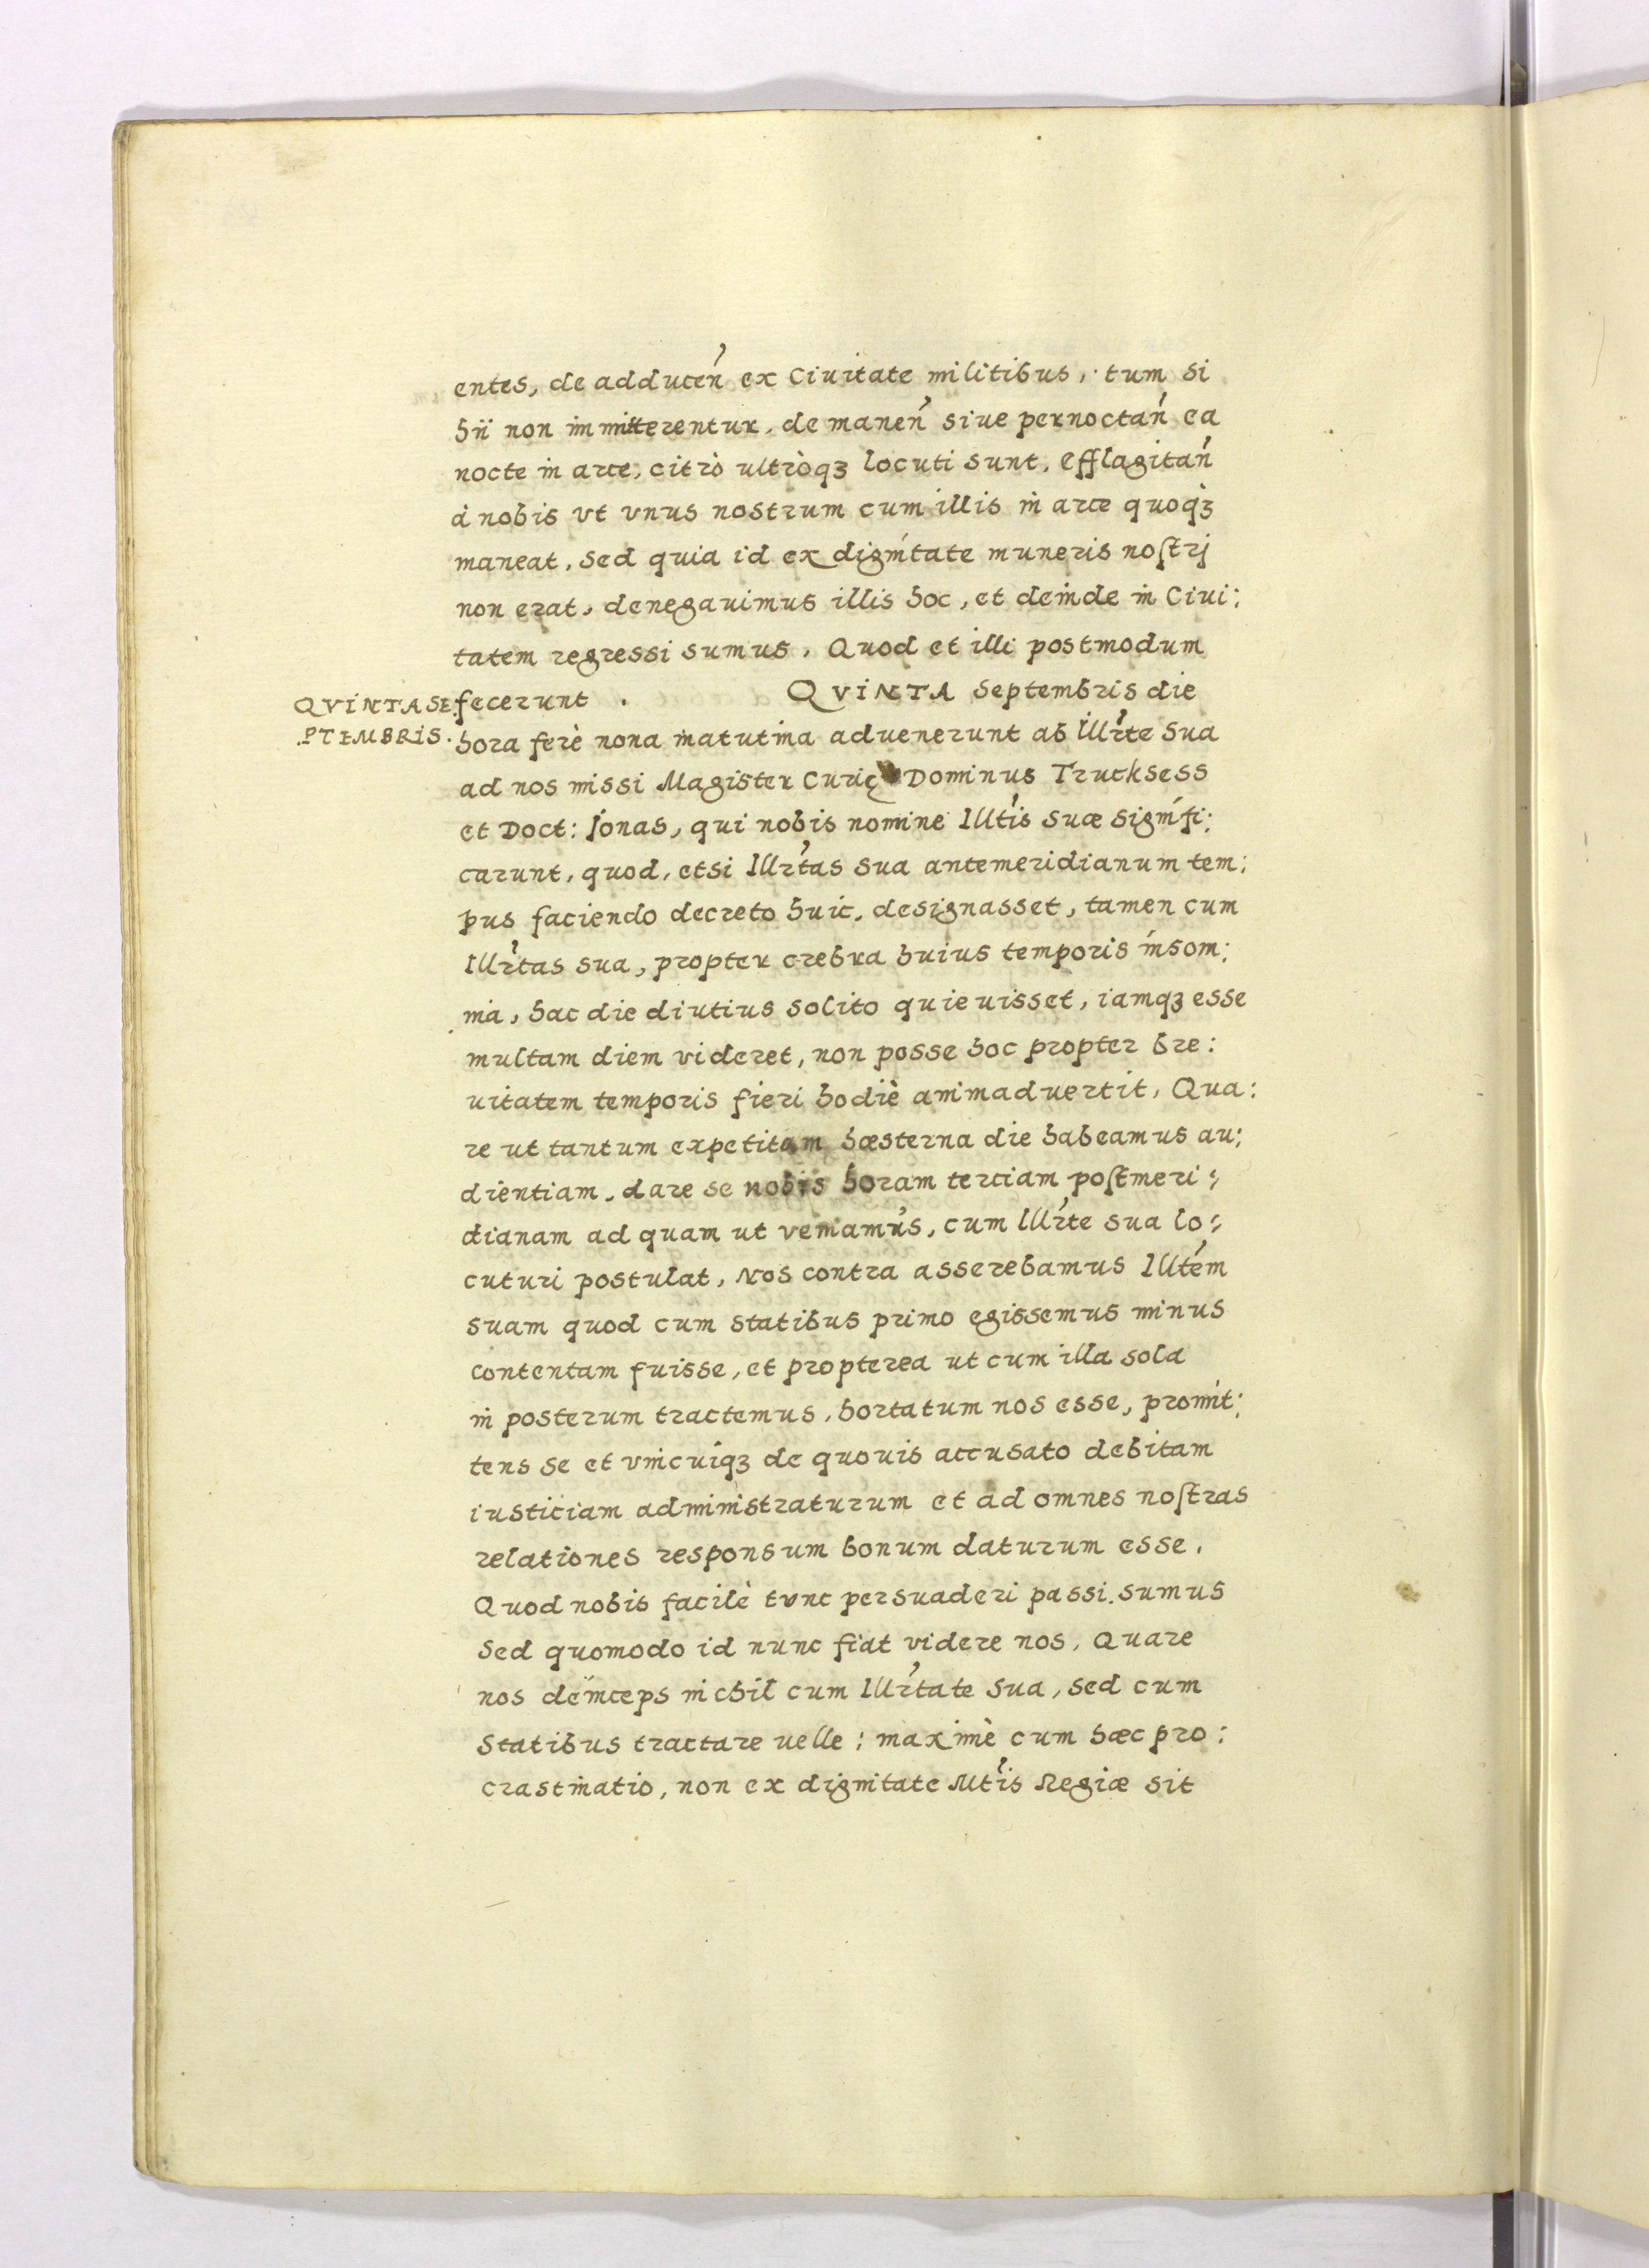 entes, de adducen̄ ex Ciuitate militibus, tum si
hii non immitterentur, de manen̄ siue pernoctan̄ ea
nocte in arce, citrò ultròqꝫ locuti sunt, Efflagitan̄
à nobis vt vnus nostrum cum illis in arce quoqꝫ
maneat, Sed quia id ex dignitate muneris noſtrj
non erat, denegauimus illis hoc, et deinde in Ciui:
tatem regressi sumus, Quod et illi postmodum
fecerunt . QVINTA Septembris die
QVINTA SE.
.PTEMBRIS.
hora ferè nona matutina aduenerunt ab Illr̃te Sua
ad nos missi Magister Curię Dominus Trucksess
et Doct: Jonas, qui nobis nomine Illt̃is Suæ Signifi:
carunt, quod, etsi Illr̃tas Sua antemeridianum tem:
pus faciendo decreto huic, designasset, tamen cum
Illr̃tas sua, propter crebra huius temporis insom:
nia, hac die diutius solito quieuisset, iamqꝫ esse
multam diem videret, non posse hoc propter bre:
uitatem temporis fieri hodiè animaduertit, Qua:
re ut tantum expetitam hæsterna die habeamus au:
dientiam, dare se nobis horam tertiam poſtmeri:
dianam ad quam ut veniamus, cum Illr̃te sua lo:
cuturi postulat, Nos contra asserebamus Illt̃em
suam quod cum statibus primo egissemus minus
contentam fuisse, et propterea ut cum illa sola
in posterum tractemus, hortatum nos esse, promit:
tens se et vnicuiqꝫ de quouis accusato debitam
iusticiam administraturum et ad omnes noſtras
relationes responsum bonum daturum esse.
Quod nobis facilè tvnc persuaderi passi sumus
Sed quomodo id nunc fiat videre nos, Quare
nos deinceps nichil cum Illr̃tate Sua, sed cum
Statibus tractare uelle: maximè cum hæc pro:
crastinatio, non ex dignitate Mt̃is Regiæ sit